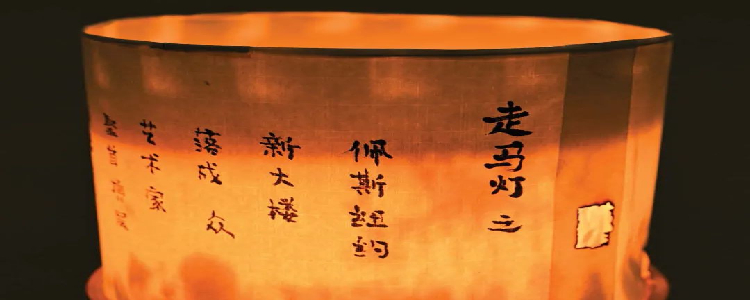 走马灯之
佩斯纽约
新大楼
落成 众
艺术家
聚首